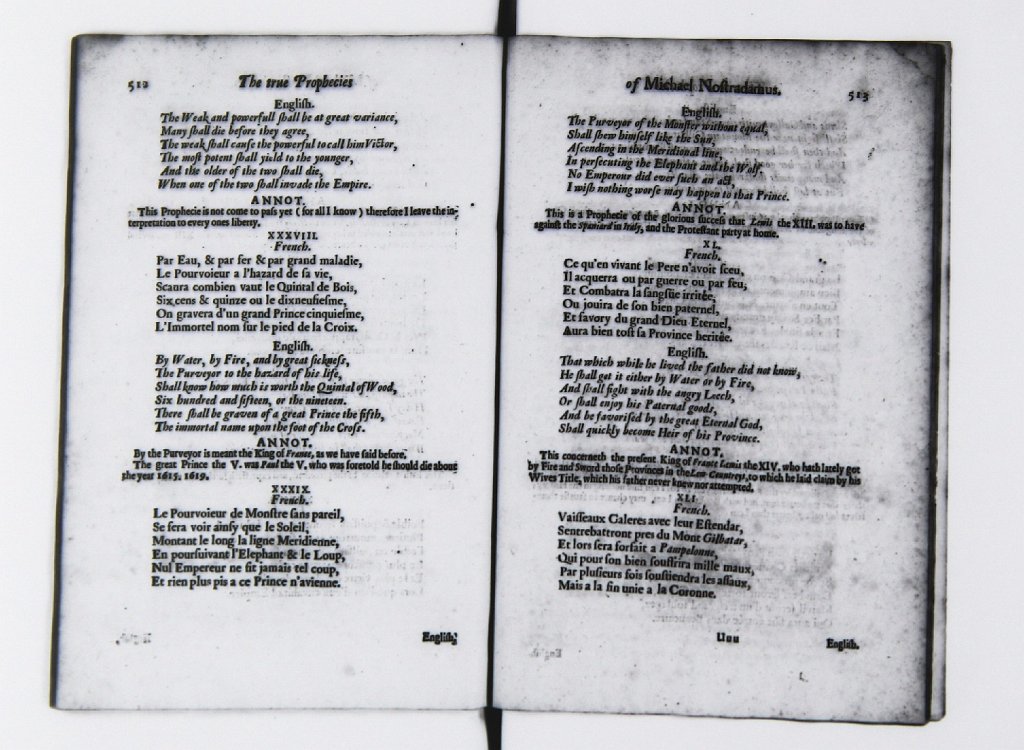 512 The true Prophecies
Engliſh.
The Weak and powerfull ſhall be at great variance,
Many ſhall die before they agree,
The weak ſhall cauſe the powerful to call him Victor,
The moſt potent ſhall yield to the younger,
And the older of the two ſhall die,
When one of the two ſhall invade the Empire.
ANNOT.
This Prophecie is not come to paſs yet (for all I know) therefore I leave the in-
terpretation to every ones liberty.
XXXVIII.
French.
Par Eau, & par fer & par grand maladie,
Le Pourvoieur a l'hazard de ſa vie,
Scaura combien vaut le Quintal de Bois,
Six cens & quinze ou le dixneufieſme,
On gravera d'un grand Prince cinquieſme,
L'Immortel nom ſur le pied de la Croix.
Engliſh.
By Water, by Fire, and by great ſickneſs,
The Purveyor to the hazard of his life,
Shall know how much is worth the Quintal of Wood,
Six hundred and fifteen, or the nineteen.
There ſhall be graven of a great Prince the fifth,
The immortal name upon the foot of the Croſs.
ANNOT.
By the Purveyor is meant the King of France, as we have ſaid before.
The great Prince the V. was Paul the V. who was foretold he ſhould die about
the year 1615. 1619.
XXXIX.
French.
Le Pourvoieur de Monſtre ſans pareil,
Se ſera voir ainſy que le Soleil,
Montant le long la ligne Meridienne,
En pourſuivant l'Elephant & le Loup,
Nul Empereur ne fit jamais tel coup,
Et rien plus pis a ce Prince n'avienne.
Engliſh,
of Michael Noſtradamus. 513
Engliſh.
The Purveyor of the Monſter without equal,
Shall ſhew himſelf like the Sun,
Aſcending in the Meridional line,
In perſecuting the Elephant and the Wolf.
No Emperour did ever ſuch an act,
I wiſh nothing worſe may happen to that Prince.
ANNOT.
This is a Prophecie of the glorious ſucceſs that Lewis the XIII. was to have
againſt the Spaniard in Italy, and the Proteſtant party at home.
XL.
French.
Ce qu'en vivant le Pere n'avoit ſceu,
Il acquerra ou par guerre ou par feu,
Et Combatra la ſangſüe irritée,
Ou jouira de ſon bien paternel,
Et favory du grand Dieu Eternel,
Aura bien toſt ſa Province heritée.
Engliſh.
That which while he lived the father did not know,
He ſhall get it either by Water or by Fire,
And ſhall fight with the angry Leech,
Or ſhall enjoy his Paternal goods,
And be favoriſed by the great Eternal God,
Shall quickly become Heir of his Province.
ANNOT.
This concerneth the present King of France Lewis the XIV. who hath lately got
by Fire and Sword thoſe Provinces in the Low-Countreys, to which he laid claim by his
Wives Title, which his father never knew nor attempted.
XLI.
French.
Vaiſſeaux Galeres avec leur Eſtendar,
Sentrebattront pres du Mont Gilbatar,
Et lors ſera forſait a Pampelonne,
Qui pour ſon bien souffrira mille maux,
Par pluſieurs fois ſouſtiendra les aſſaux,
Mais a la fin unie a la Coronne.
Uuu Engliſh.